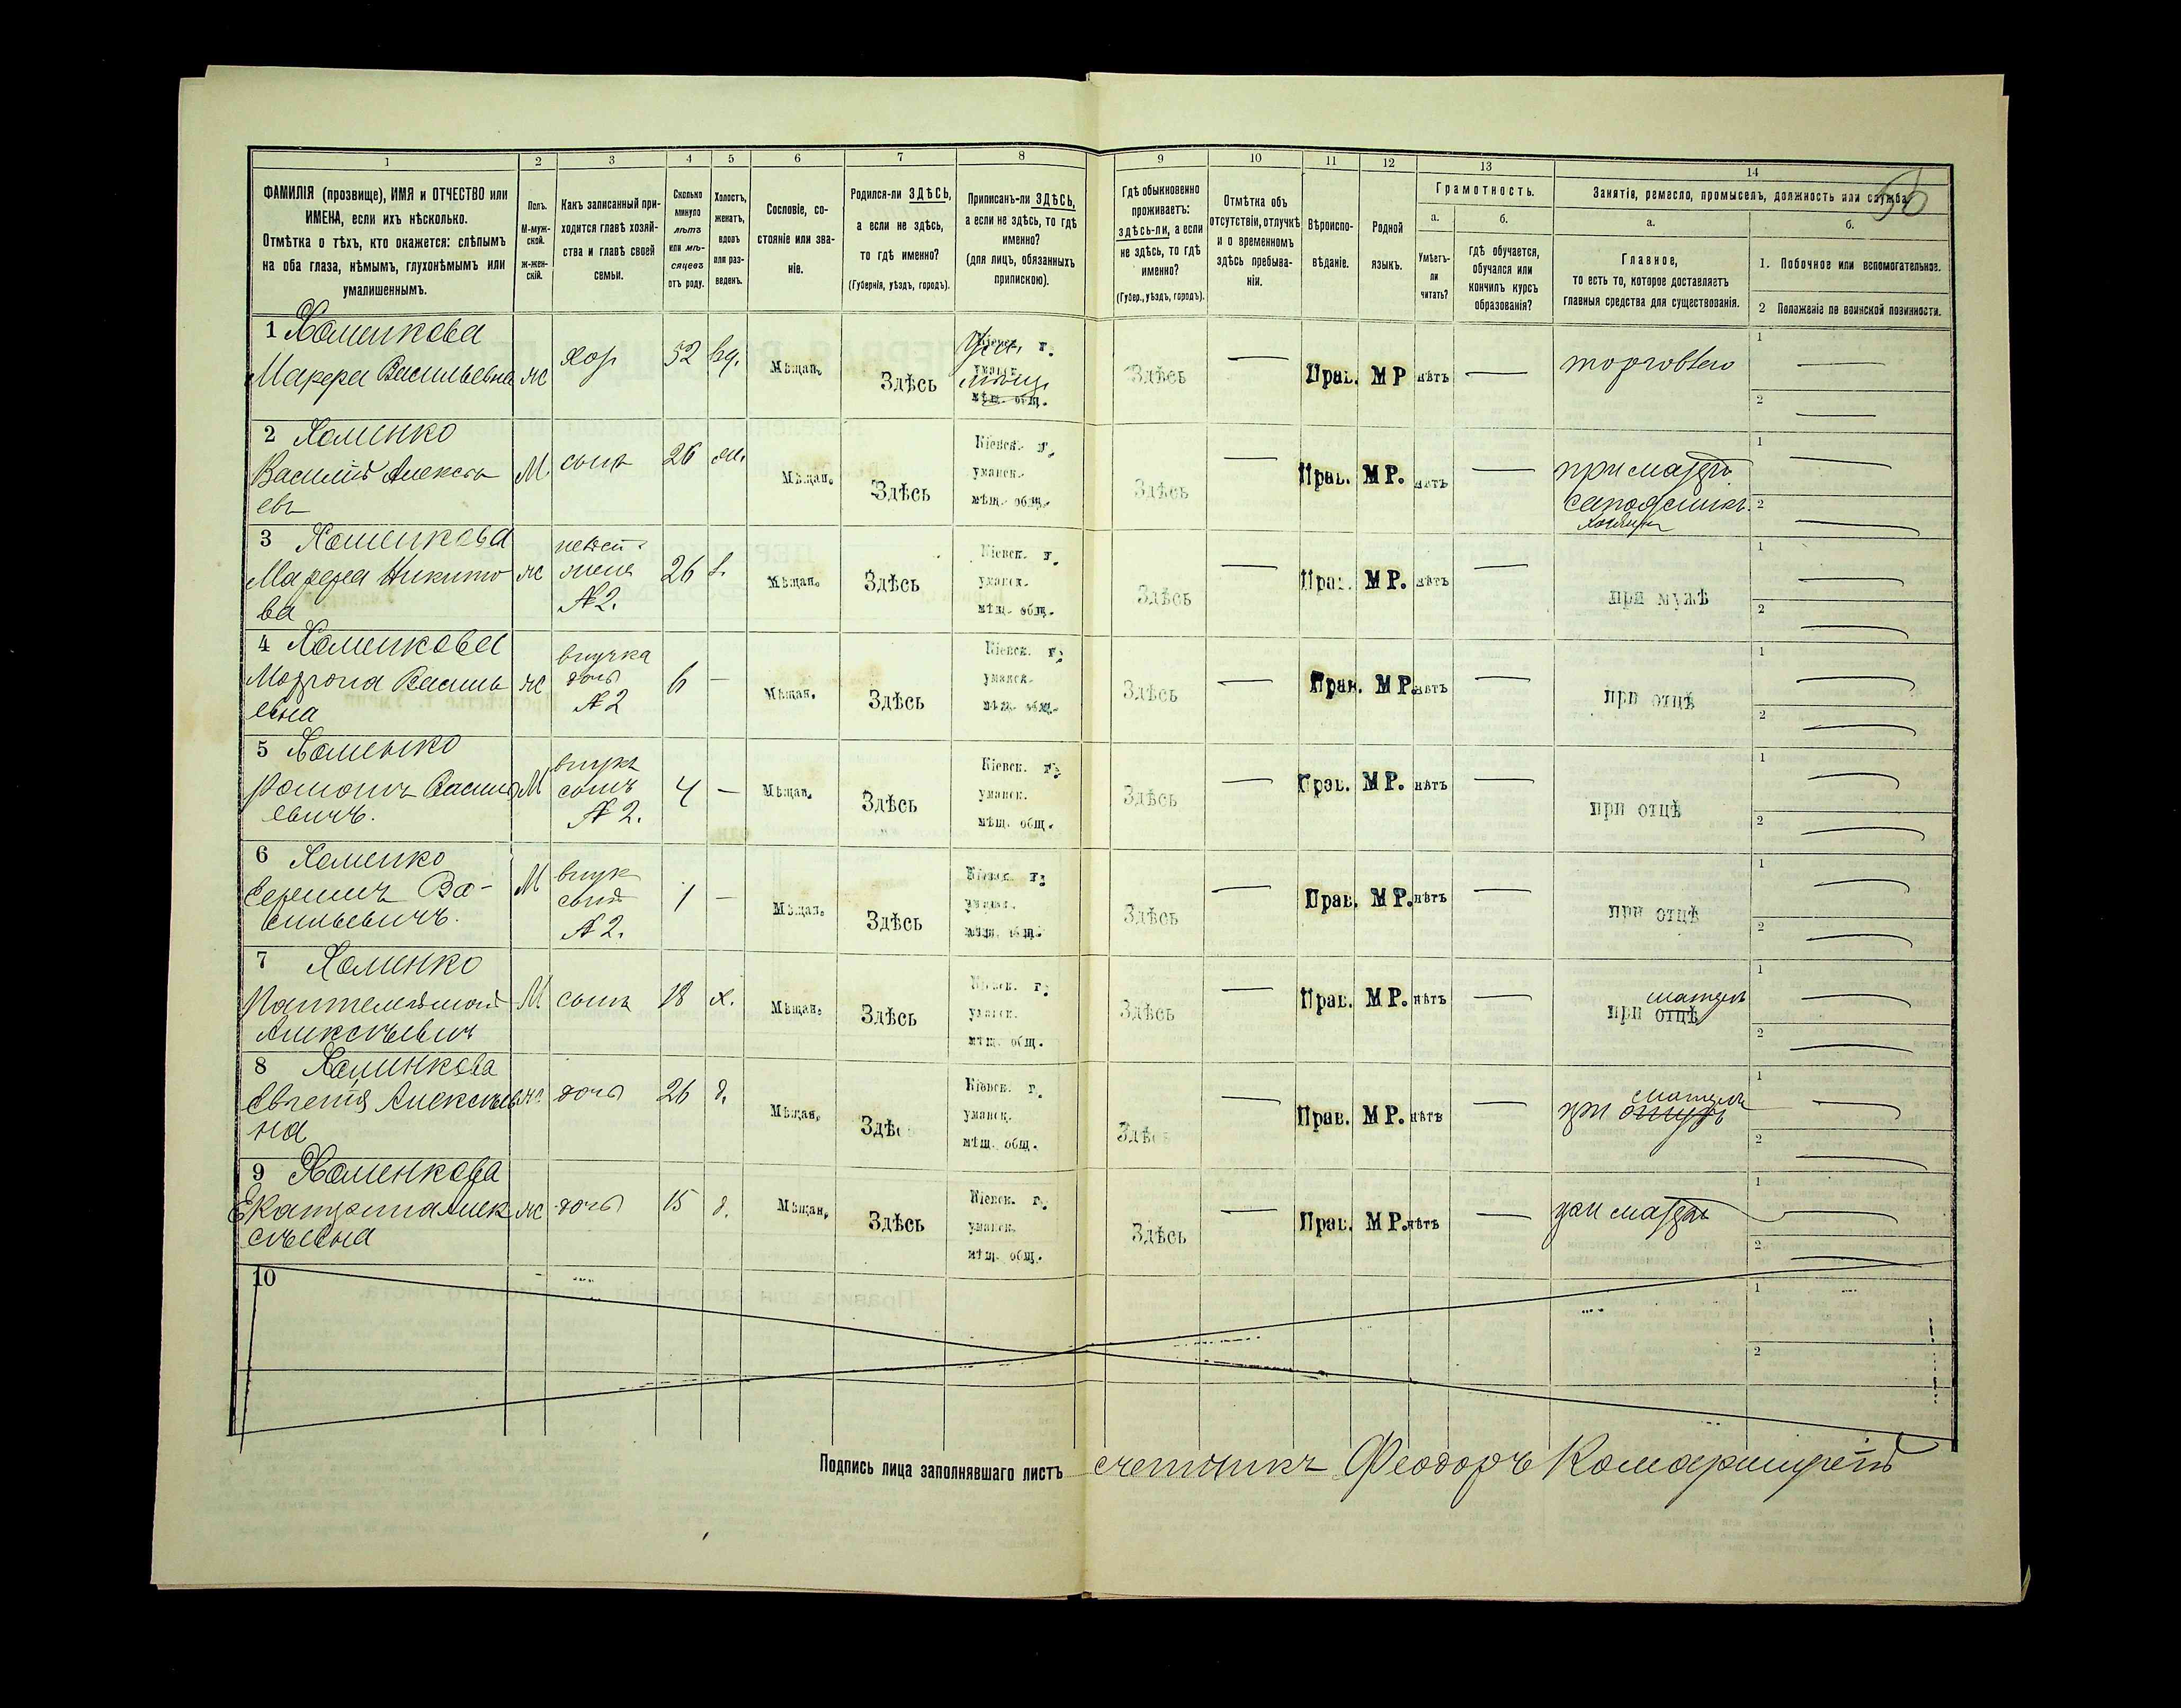 1 2 3 4 5 6 7 8 9 10 11 12 13 14
ФАМИЛІЯ (прозвище), ИМЯ и ОТЧЕСТВО или
ИМЕНА, если ихъ нѣсколько.
Отмѣтка о тѣхъ, кто окажется: слѣпымъ
на оба глаза, нѣмымъ, глухонѣмымъ или
умалишеннымъ.
Полъ.
М-муж-
ской.
Ж-жен-
скій.
Какъ записанный при-
ходится главѣ хозяй-
ства и главѣ своей
семьи.
Сколько
минуло
лѣтъ
или мѣ-
сяцевъ
отъ роду.
Холостъ,
женатъ,
вдовъ
или раз-
веденъ.
Сословіе, со-
стояніе или зва-
ніе.
Родился-ли ЗДѢСЬ,
а если не здѣсь,
то гдѣ именно?
(Губернія, уѣздъ, городъ).
Приписанъ-ли ЗДѢСЬ,
а если не здѣсь, то гдѣ
именно?
(для лицъ, обязанныхъ
припискою).
Гдѣ обыкновенно
проживаетъ:
здѣсь-ли, а если
не здѣсь, то гдѣ
именно?
(Губер., уѣздъ, городъ).
Отмѣтка объ
отсутствіи, отлучкѣ
и о временномъ
здѣсь пребыва-
ніи.
Вѣроиспо-
вѣданіе.
Родной
языкъ.
Грамотность.
а.
Умѣетъ-
ли
читать?
б.
гдѣ обучается,
обучался или
кончилъ курсъ
образованія?
Занятія, ремесло, промыселъ, должность или служба.
а.
Главное,
то есть то, которое доставляетъ
главныя средства для существованія.
б.
1. Побочное или вспомогательное.
2 Положеніе по воинской повинности.
1 Хоменкова
Марфа Васильевна ж хоз 52 вд. Мѣщан. Здѣсь
Кіевск. г.
уманск.
мѣщ. общ.
Здѣсь — Прав. МР нѣтъ — торговлею 1 — 2 —
2 Хоменко
Василій Алексѣ
евъ
М сынъ 26 ж. Мѣщан. Здѣсь
Кіевск. г.
уманск.
мѣщ. общ.
Здѣсь — Прав. МР. нѣтъ —
при матери
сапожникъ
1 — 2 —
3 Хоменкова
Марфа Никито
ва
ж
невѣст
жена
№ 2.
26 з. Мѣщан. Здѣсь
Кіевск. г.
уманск.
мѣщ. общ.
Здѣсь — Прав. МР. нѣтъ — при мужѣ 1 — 2 —
4 Хоменкова
Мотрона Василь
евна
ж
внучка
дочь
№ 2
6 — Мѣщан. Здѣсь
Кіевск. г.
уманск.
мѣщ. общ.
Здѣсь — Прав. МР. нѣтъ — при отцѣ 1 — 2 —
5 Хоменко
Романъ Василь
евичъ.
М
внукъ
сынъ
№ 2.
4 — Мѣщан. Здѣсь
Кіевск. г.
уманск.
мѣщ. общ.
Здѣсь — Прав. МР. нѣтъ — при отцѣ 1 — 2 —
6 Хоменко
Ва-
сильевичъ.
М
внук
сынъ
№ 2.
1 — Мѣщан. Здѣсь
Кіевск. г.
уманск.
мѣщ. общ.
Здѣсь — Прав. МР. нѣтъ — при отцѣ 1 — 2 —
7 Хоменко
Пантелеймон
Алексѣевич
М сынъ 18 х. Мѣщан. Здѣсь
Кіевск. г.
уманск.
мѣщ. общ.
Здѣсь — Прав. МР. нѣтъ —
матери
при отцѣ
1 — 2 —
8 Хоменкова
Евгенія Алексѣев
на
ж. дочь 26 д. Мѣщан. Здѣсь
Кіевск. г.
уманск.
мѣщ. общ.
Здѣсь — Прав. МР. нѣтъ —
матери
при отцѣ
1 — 2 —
9 Хоменкова
Екатерина Алек
сѣевна
ж дочь 15 д. Мѣщан. Здѣсь
Кіевск. г.
уманск.
мѣщ. общ.
Здѣсь — Прав. МР. нѣтъ — при матери 1 — 2 —
10 1 2
Подпись лица заполнявшаго листъ счетчикъ Феодоръ